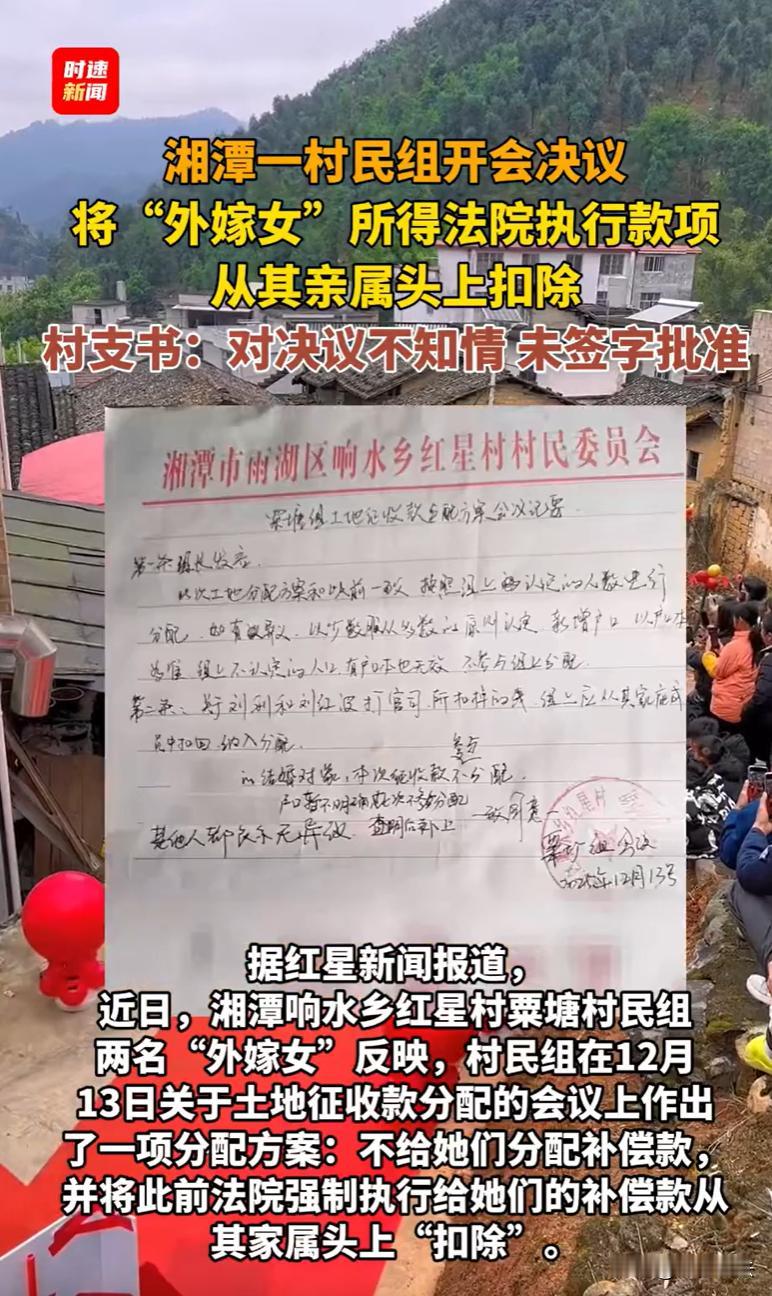 时速
新闻
湘潭一村民组开会决议
将“外嫁女”所得法院执行款项
从其亲属头上扣除
村支书：对决议不知情 未签字批准
湘潭市雨湖区响水乡红星村村民委员会
粟塘组土地征收款分配方案会议记要
第一条组长发言
此次土地分配方案和以前一致 按照组上确认定的人数进行
分配，如有异议，以少数服从多数的原则认定，新增户口以户口本
为准 组上不认定的人口有户口本也无效 不参与组上分配
第二条：关于刘利和刘红没打官司所扣掉的钱，组上应从其家庭成
员中扣回 纳入分配
参与
的结婚对象，本次征收款不分配
户口暂不明确此次不参与分配
其他人都表示无异议 查明后补上 一致同意
粟塘组会议
2025年12月13号
据红星新闻报道，
近日，湘潭响水乡红星村粟塘村民组
两名“外嫁女”反映，村民组在12月
13日关于土地征收款分配的会议上作出
了一项分配方案：不给她们分配补偿款，
并将此前法院强制执行给她们的补偿款从
其家属头上“扣除”。